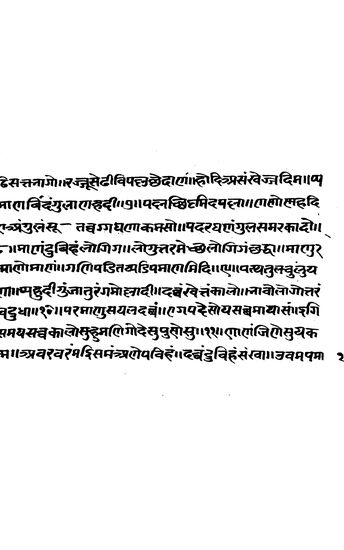 ढिसत्तनागो॥रज्जूसेढीविपल्लछेदाणं॥होदिअसंखेज्जदिम॥प्प
माणविंदंगुलाणहदी॥७॥पल्लछिदिमिदपल्ला॥
अंगुलंसू– तव्वग्गघणाकमसो॥पदरघणंगुलसमरकादो॥
८॥माणंदुविहंलोगिग॥लोगुत्तरमेच्छलोगिगंछद्धा॥माणुर
माणोमाणं॥गणिपडितप्पडिपमाणमिदि॥९॥पत्थतुलचुलुय
॥प्पहुदीगुंजातुरंगमोल्लादी॥दव्वंखेत्तंकालो॥नावोलोगोत्तरं
चदुधा॥१०॥परमाणुसयलदव्वं॥एगपदेसोयसव्वमायासं॥इगि
समयसव्वकालोसुहुमणिगोदेसुपुसेसु॥११॥णाणंजिणेसुयक
म॥अवरवरंमज्झिमंअणेयविहं॥दव्वंदुविहंसंखा॥उवमपमा २